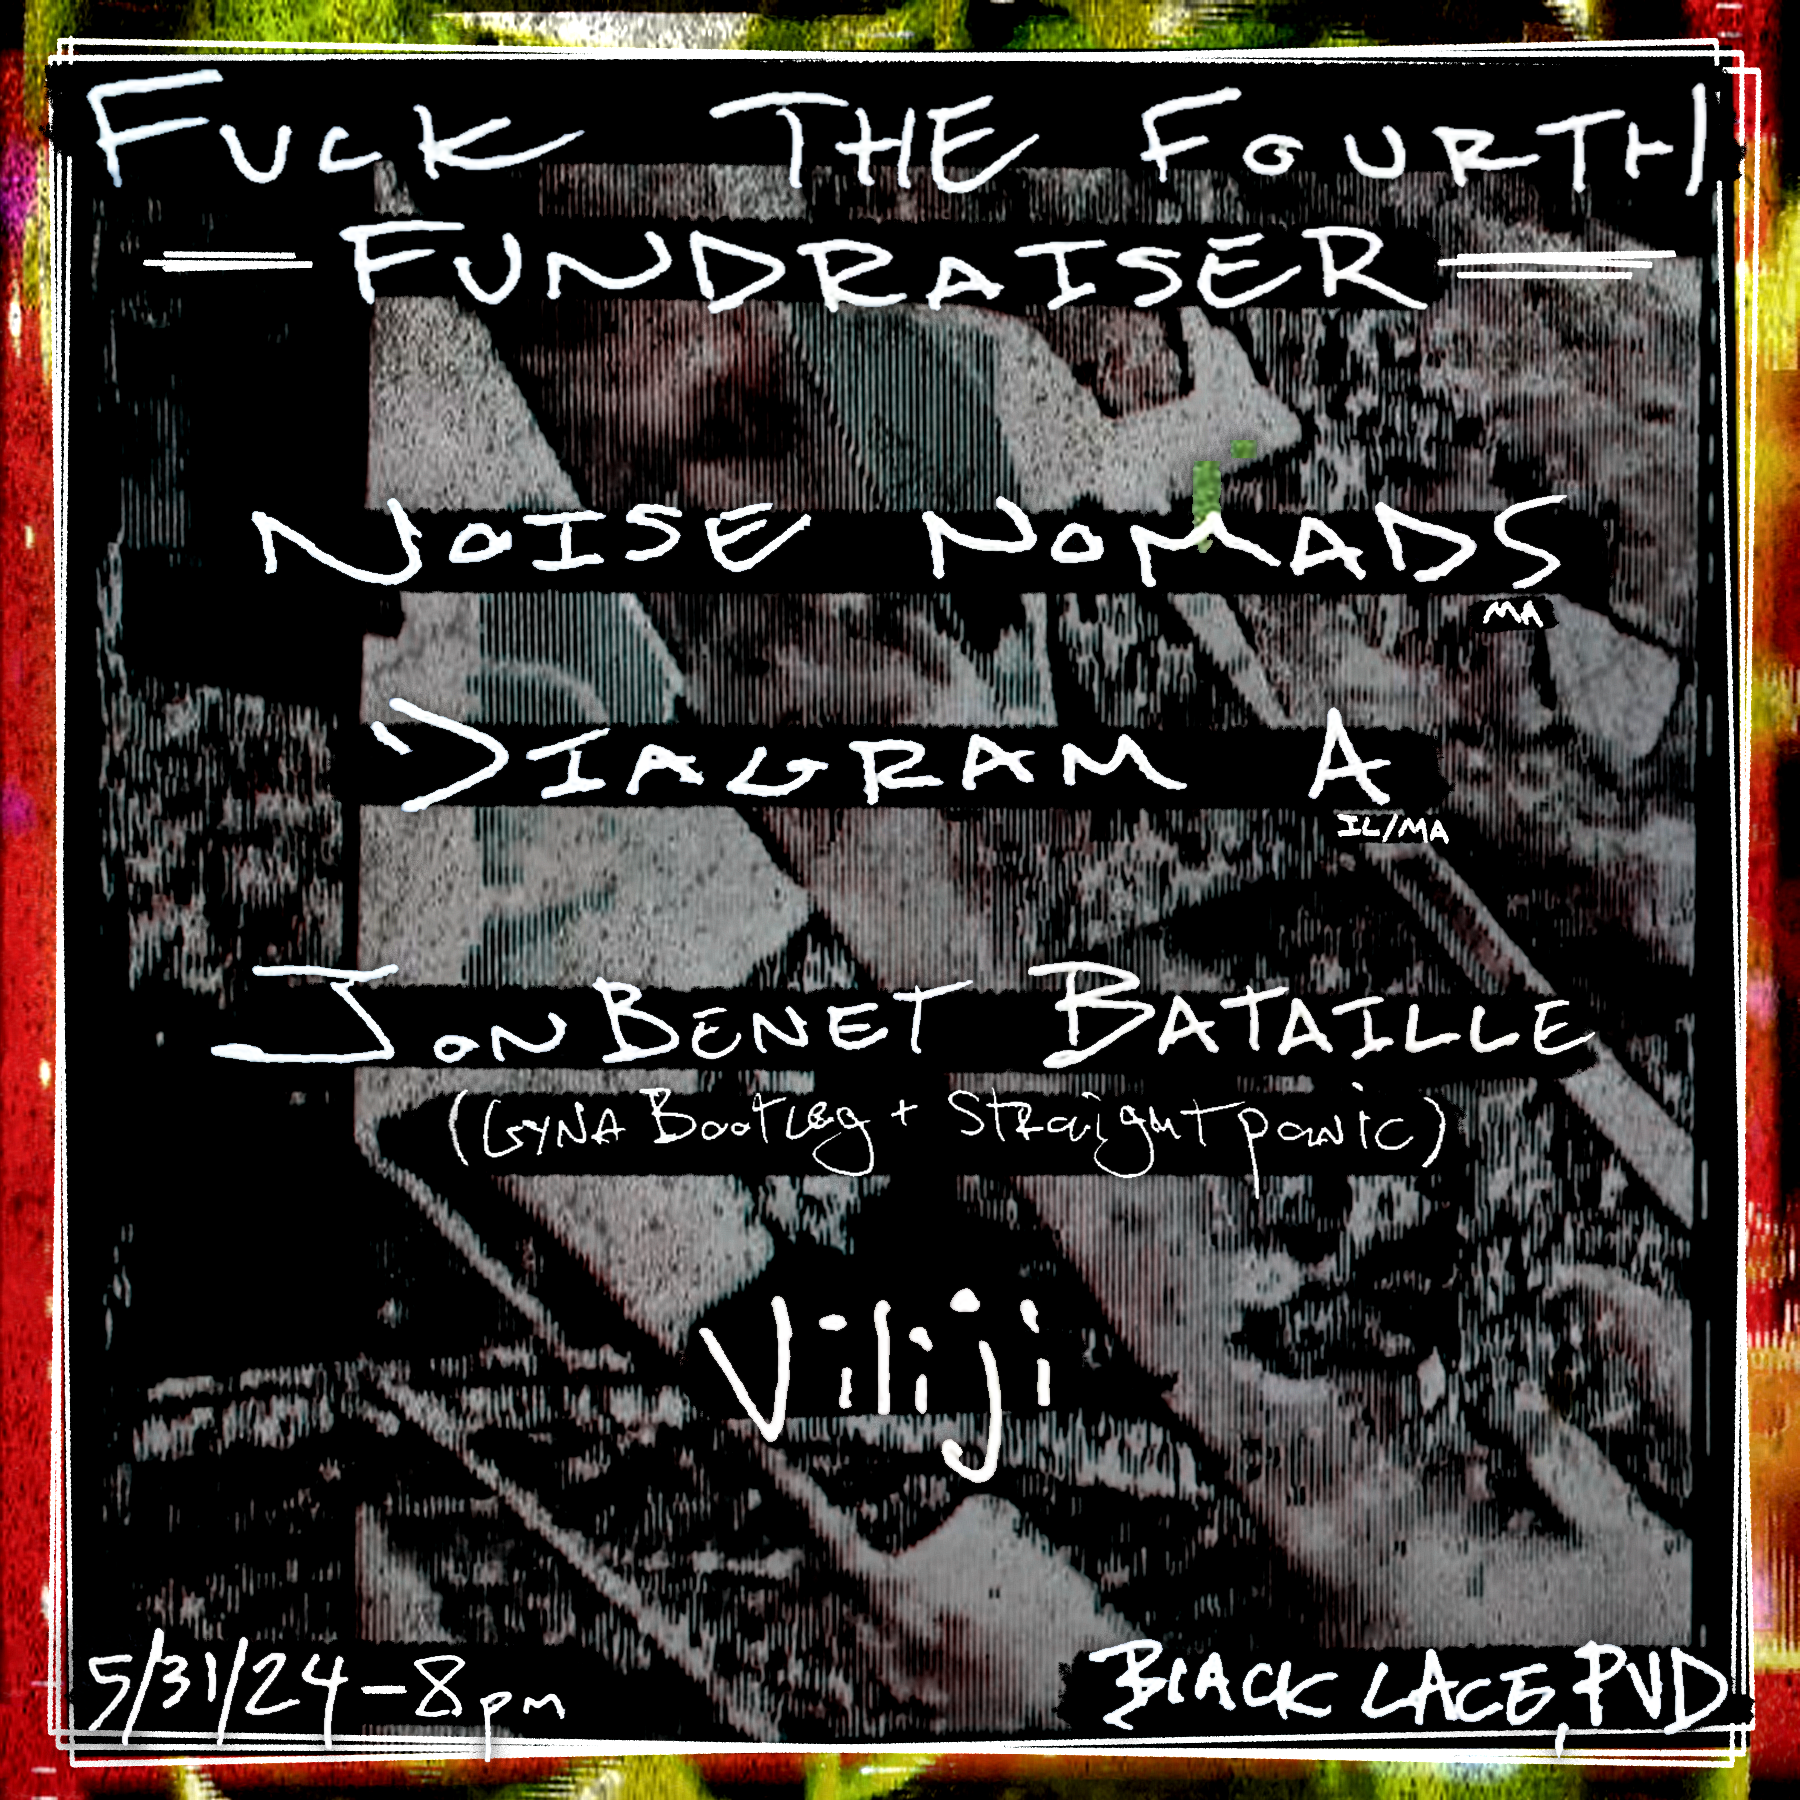 FUCK THE FOURTH
FUNDRAISER
NOISE NOMADS
MA
DIAGRAM A
IL/MA
JONBENET BATAILLE
(GYNA Bootleg + Straight panic)
Viliji
5/31/24 - 8pm
BLACK LACE, PVD